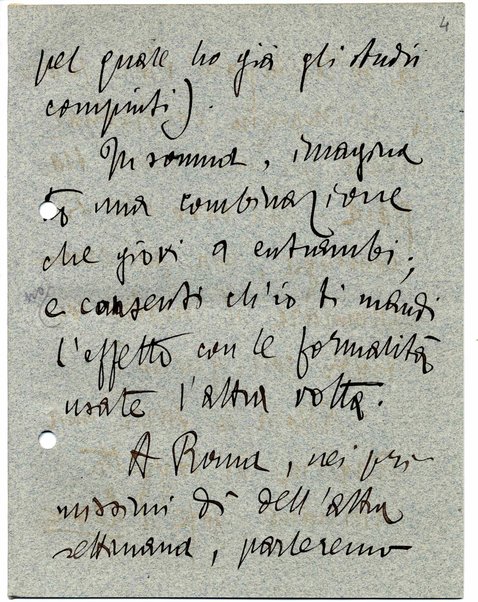 4
pel quale ho già gli studii
compiuti).
Insomma, imagina
tu una combinazione
che giovi a entrambi;
e consenti ch'io ti mandi
l'effetto con le formalità
usate l'altra volta.
A Roma, nei pri-
missimi dì dell'altra
settimana, parleremo